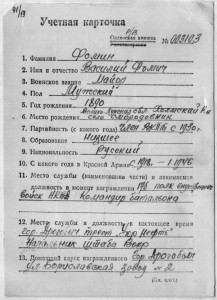 Учетная карточка
№ 0031103
1. Фамилия Фомин
2. Имя и отчество Василий Фомич
3. Воинское звание Майор
4. Пол Мужской
5. Год рождения 1890
6. Место рождения село
7. Партийность (с какого года) Член ВКПб с 1930 г.
8. Образование Низшее
9. Национальность Русский
10. С какого года в Красной Армии с 1918 - 1946
11. Место службы (наименование части) и занимаемая
должность в момент награждения 196 полк
войск НКВД Командир батальона
12. Место службы и должность в настоящее время
гор. Дрогобыч трест "Укрнефть"
Начальник штаба
13. Домашний адрес награжденного гор. Дрогобыч
ул. Бориславская завод № 2